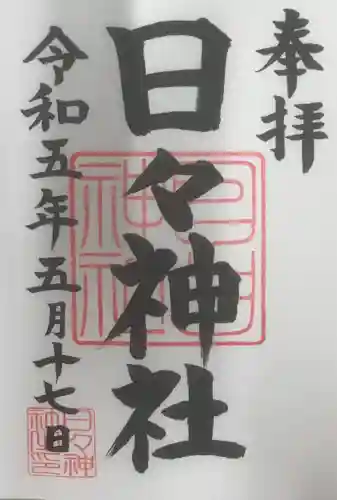 奉拝
日々神社
令和五年五月十七日
日々
神社